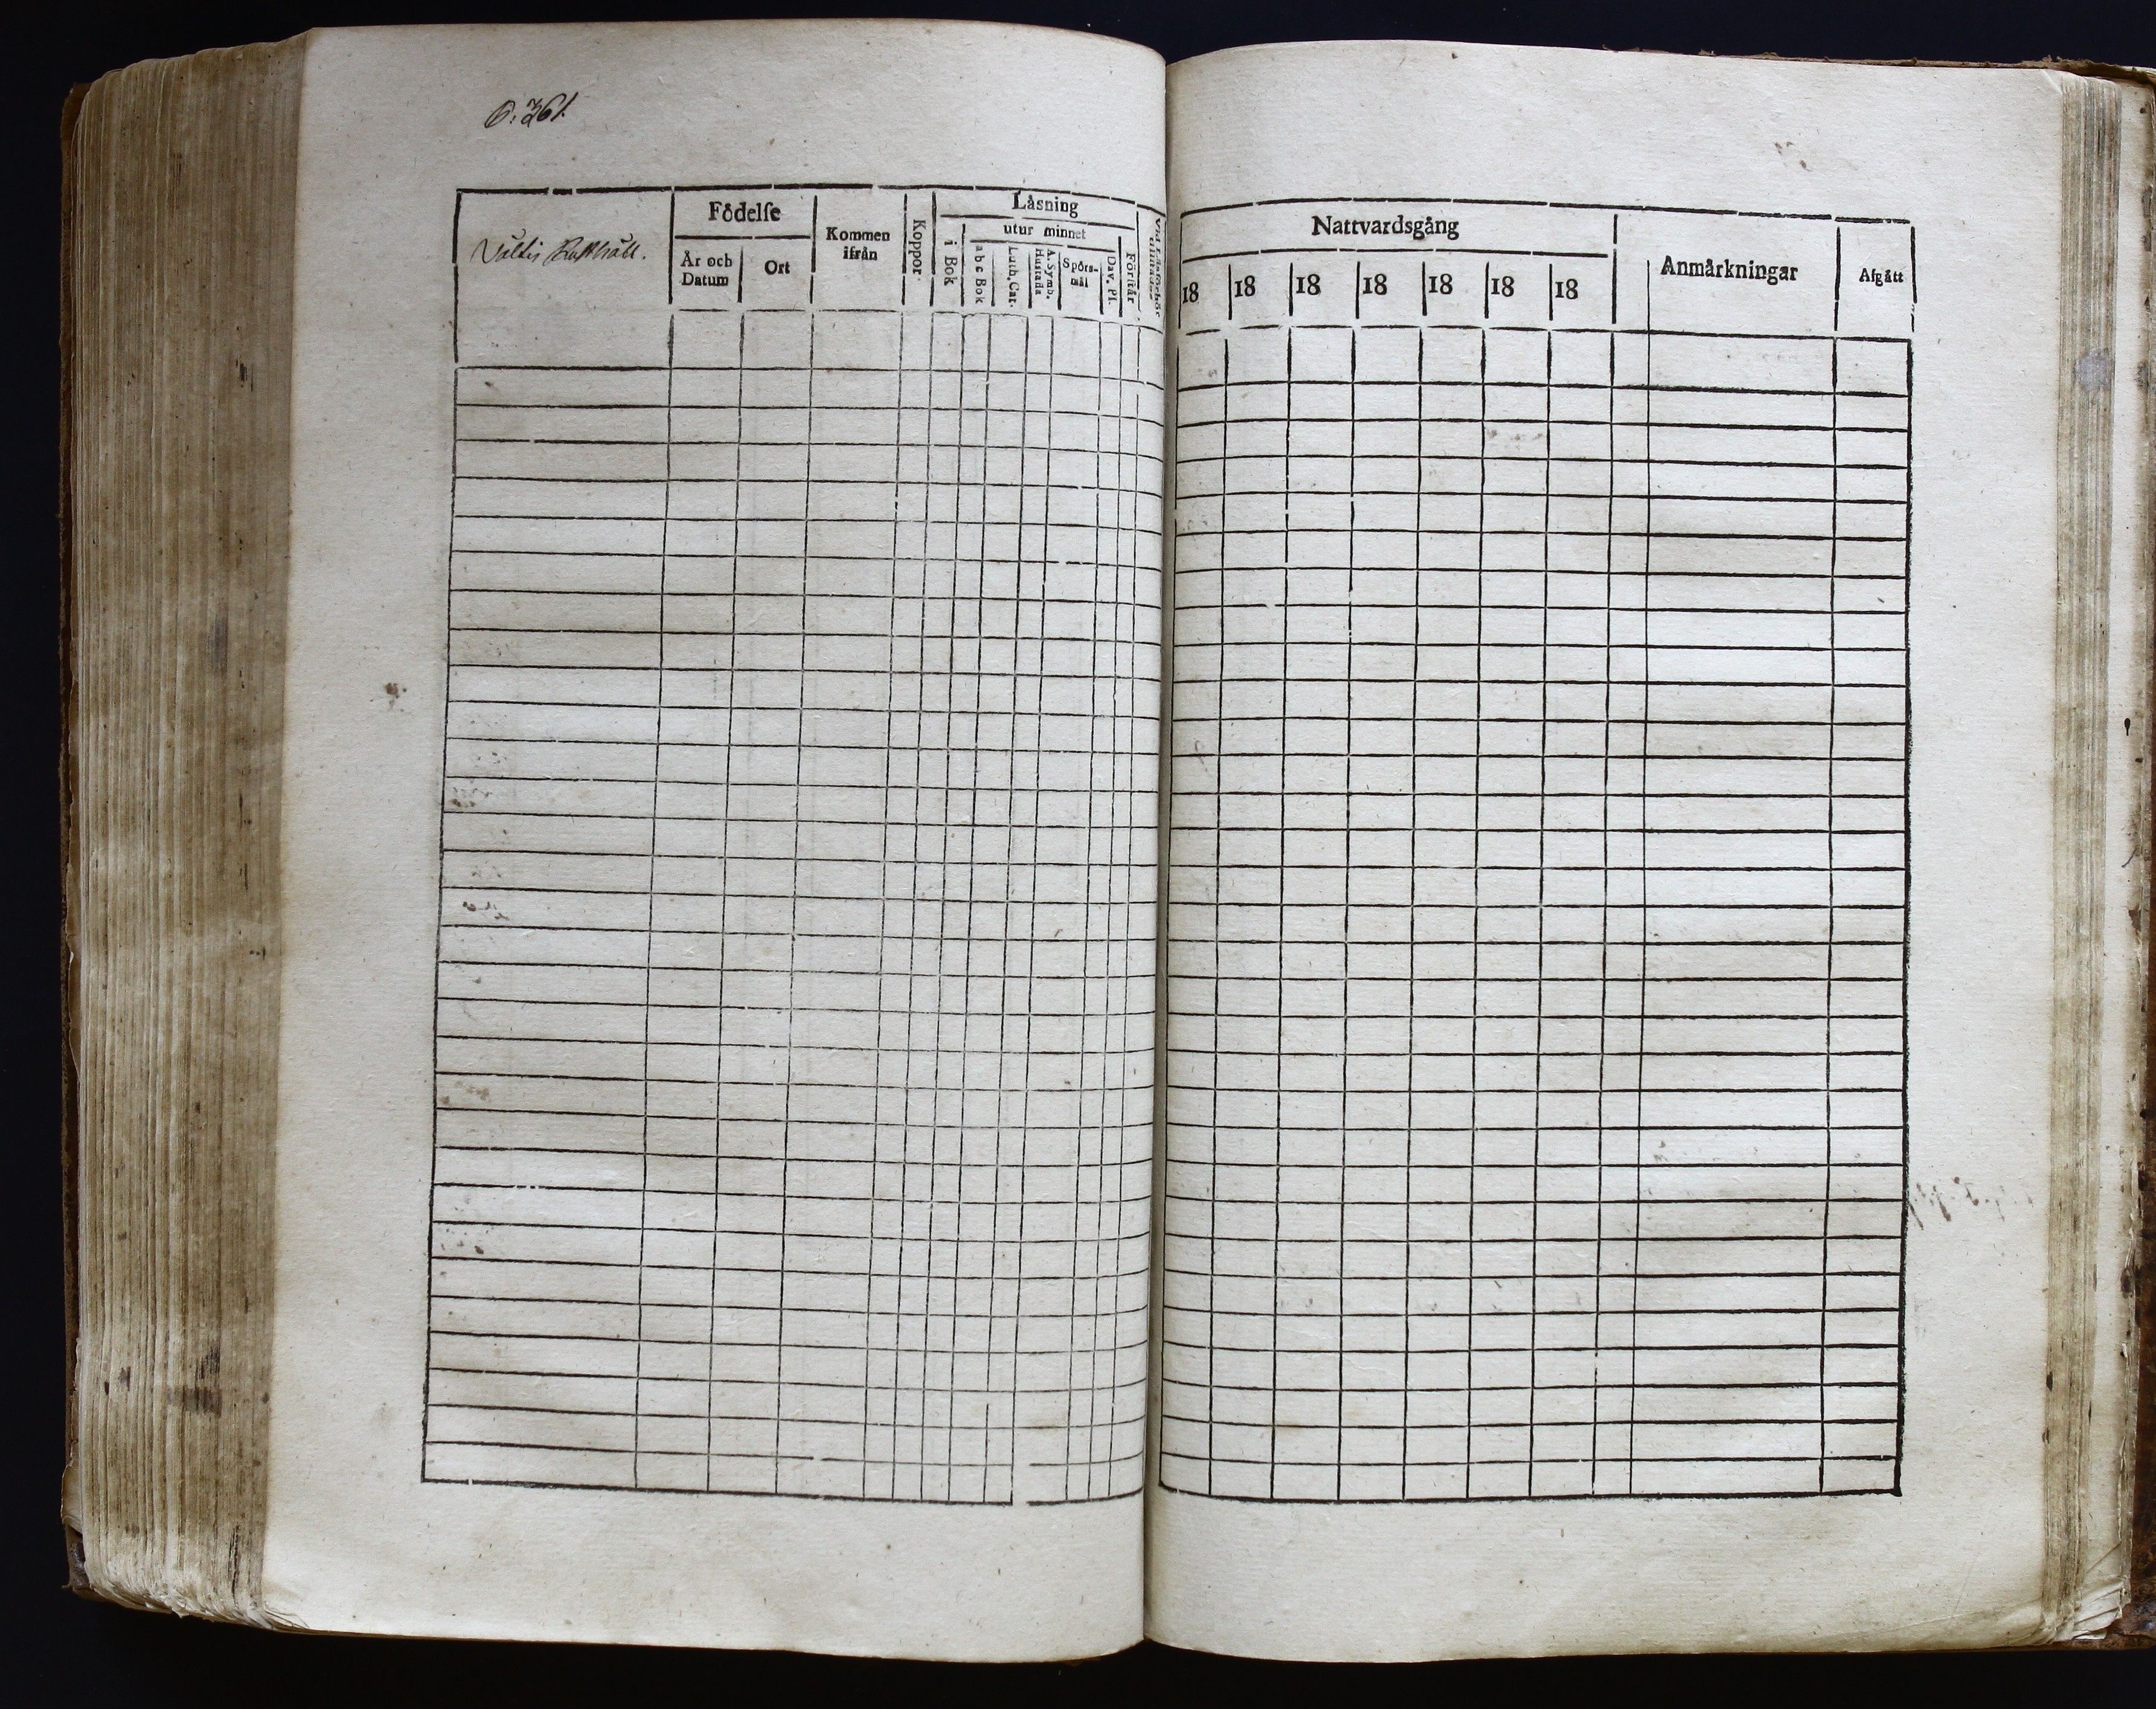 361.
Födelſe
År och Datum
Ort
Kommen ifrån
Koppor
Läsning
i Bok
utur minnet
abc Bok
Luth. Cat.
A. Symb. Huſtafla
Spörsmål
Dav. Pſ.
Förſtår
Nattvardsgång
18 18 18 18 18 18 18
Anmärkningar
Afgått